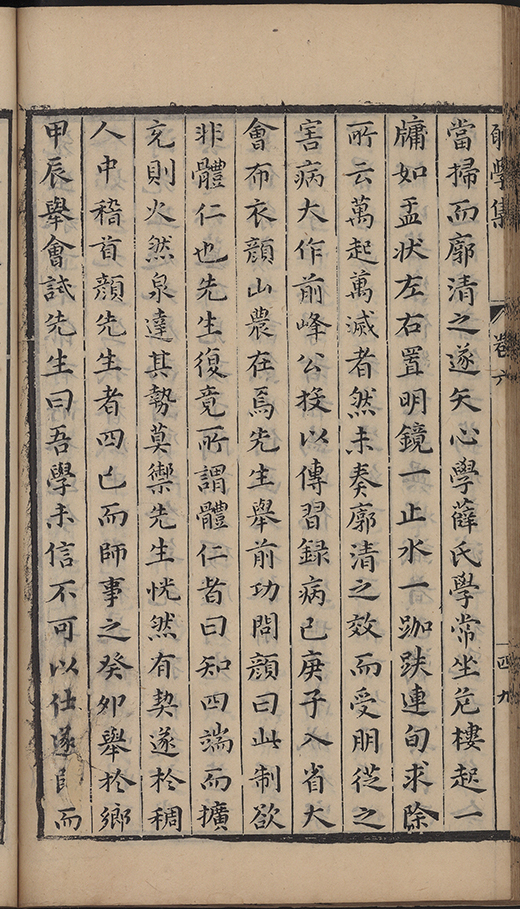 學集 卷六 四九
當掃而廓清之遂矢心學薛氏學常坐危樓起一
牗如盂狀左右置明鏡一止水一跏趺連旬求除
所云萬起萬滅者然未奏廓清之效而受朋從之
害病大作前峰公授以傳習録病已庚子入省大
會布衣顔山農在焉先生舉前功問顔曰此制欲
非體仁也先生復竟所謂體仁者曰知四端而擴
充則火然泉達其勢莫禦先生恍然有契遂於稠
人中稽首顔先生者四已而師事之癸夘舉於鄉
甲辰舉會試先生曰吾學未信不可以仕遂而